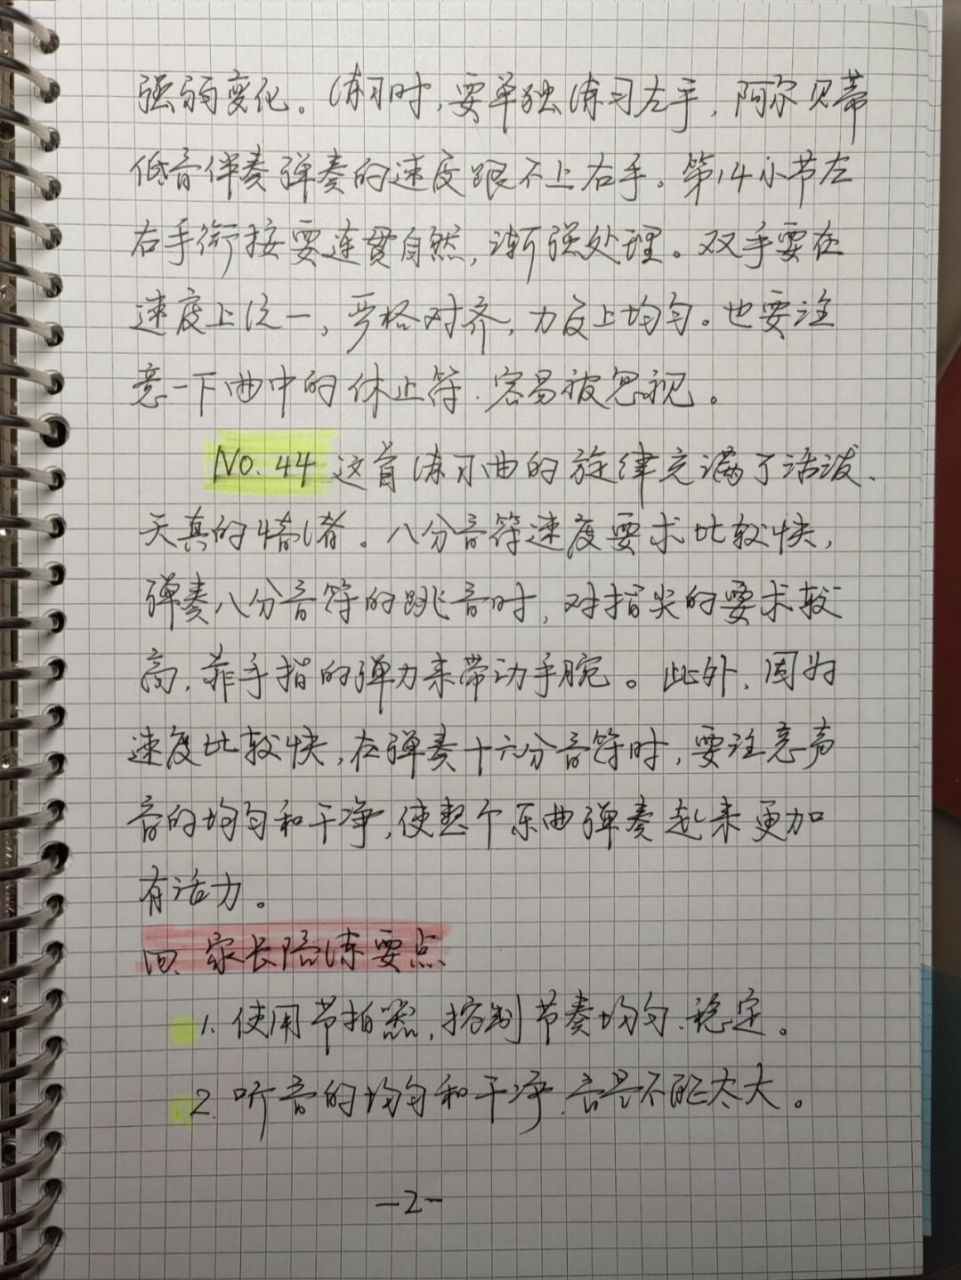 强弱变化。练习时,要单独练习左手,阿尔贝蒂
低音伴奏弹奏的速度跟不上右手。第14小节左
右手衔接要连贯自然,渐强处理。双手要在
速度上统一,严格对齐,力度上均匀。也要注
意一下曲中的休止符.容易被忽视。
No.44 这首练习曲的旋律充满了活泼、
天真的情绪。八分音符速度要求比较快,
弹奏八分音符的跳音时,对指尖的要求较
高,靠手指的弹力来带动手腕。此外,因为
速度比较快,在弹奏十六分音符时,要注意声
音的均匀和干净,使整个乐曲弹奏起来更加
有活力。
四、家长陪练要点
1. 使用节拍器,控制节奏均匀、稳定。
2. 听音的均匀和干净.音量不能太大。
-2-